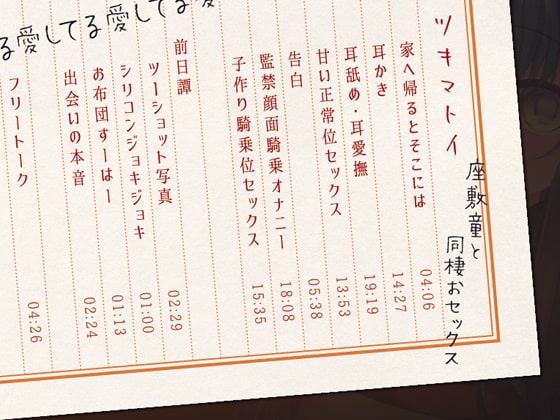 ツキマトイ
座敷童と
同棲おセックス
家へ帰るとそこには 04:06
耳かき 14:27
耳舐め・耳愛撫 19:19
甘い正常位セックス 13:53
告白 05:38
監禁顔面騎乗オナニー 18:08
子作り騎乗位セックス 15:35
前日譚
ツーショット写真 02:29
シリコンジョキジョキ 01:00
お布団すーはー 01:13
出会いの本音 02:24
フリートーク 04:26
る愛してる愛してる愛